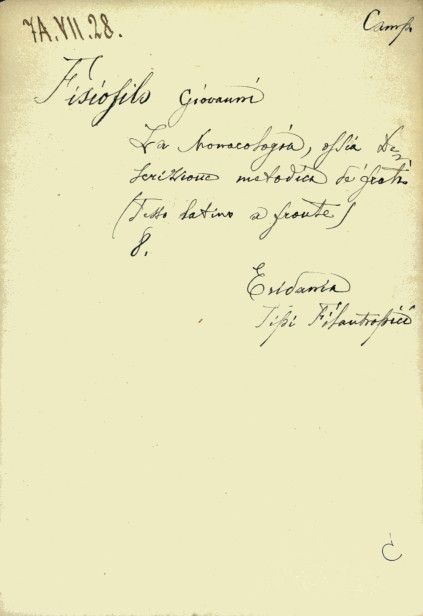 7A.VII.28.
Camp.
Fisiofilo Giovanni
La Monacologia, ossia De-
scrizione metodica de' frati
(Testo latino a fronte)
8.
Eridania
Tipi Filantropici